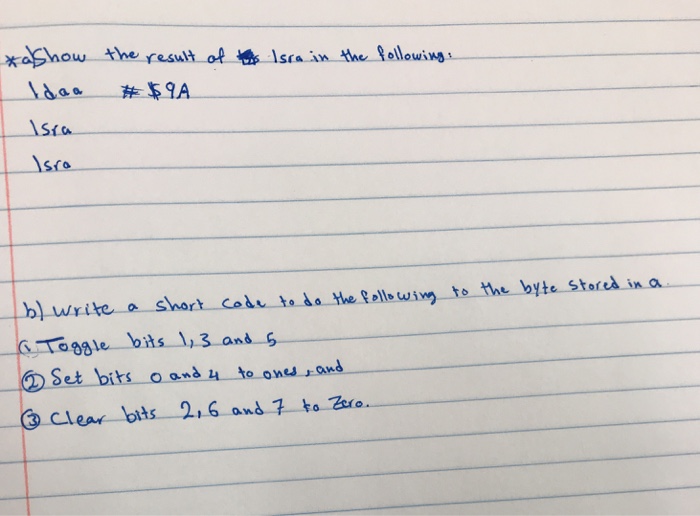 *a) Show the result of lsra in the following:
ldaa #$9A
lsra
lsra
b) Write a short code to do the following to the byte stored in a.
① Toggle bits 1, 3 and 5
② Set bits 0 and 4 to ones, and
③ Clear bits 2, 6 and 7 to Zero.